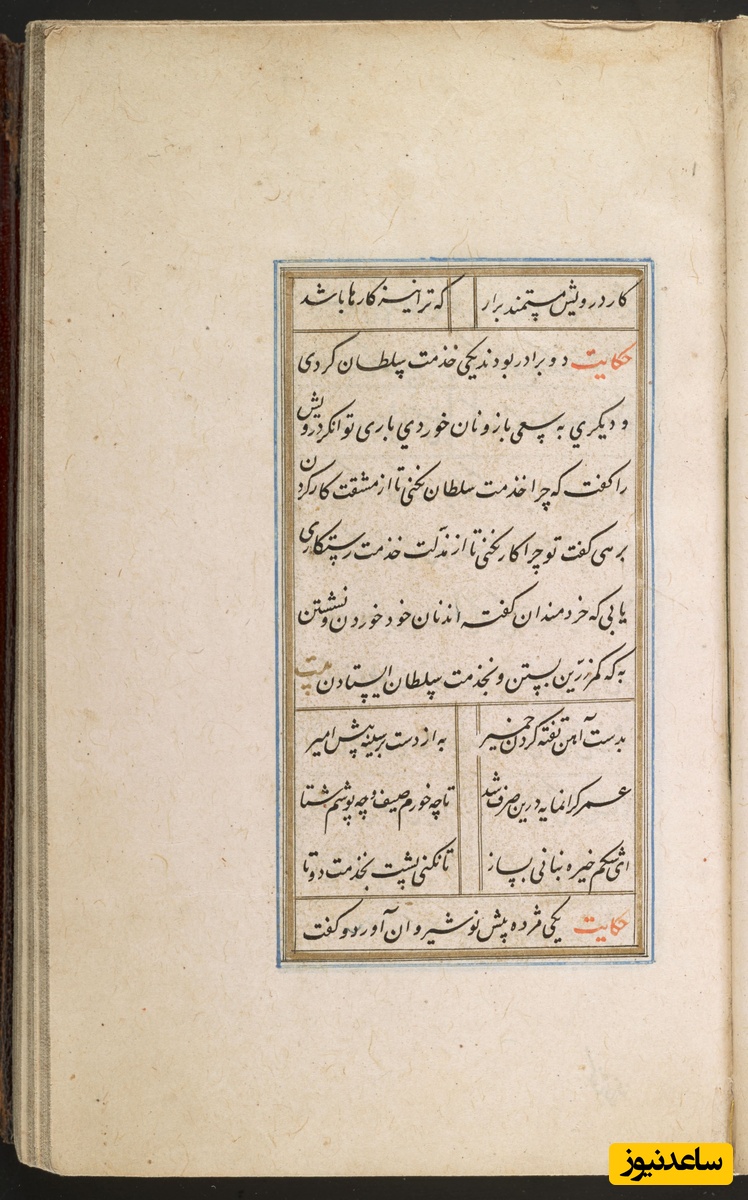 کار درویش مستمند برار که ترا نیز کارها باشد
حکایت دو برادر بودند یکی خدمت سلطان کردی
و دیگری به سعی بازو نان خوردی باری توانگر درویش
را گفت که چرا خدمت سلطان نکنی تا از مشقت کار کردن
برهی گفت تو چرا کار نکنی تا از مذلت خدمت رستکاری
یابی که خردمندان گفته اند نان خود خوردن و نشستن
به که کمر زرین بستن و بخدمت سلطان ایستادن بیت
بدست آهن تفته کردن خمیر به از دست بر سینه پیش امیر
عمر کرانمایه درین صرف شد تا چه خورم صیف و چه پوشم شتا
ای شکم خیره بنانی بساز تا نکنی پشت بخدمت دوتا
حکایت یکی مژده پیش نوشیروان آورد و گفت
ساعدنیوز